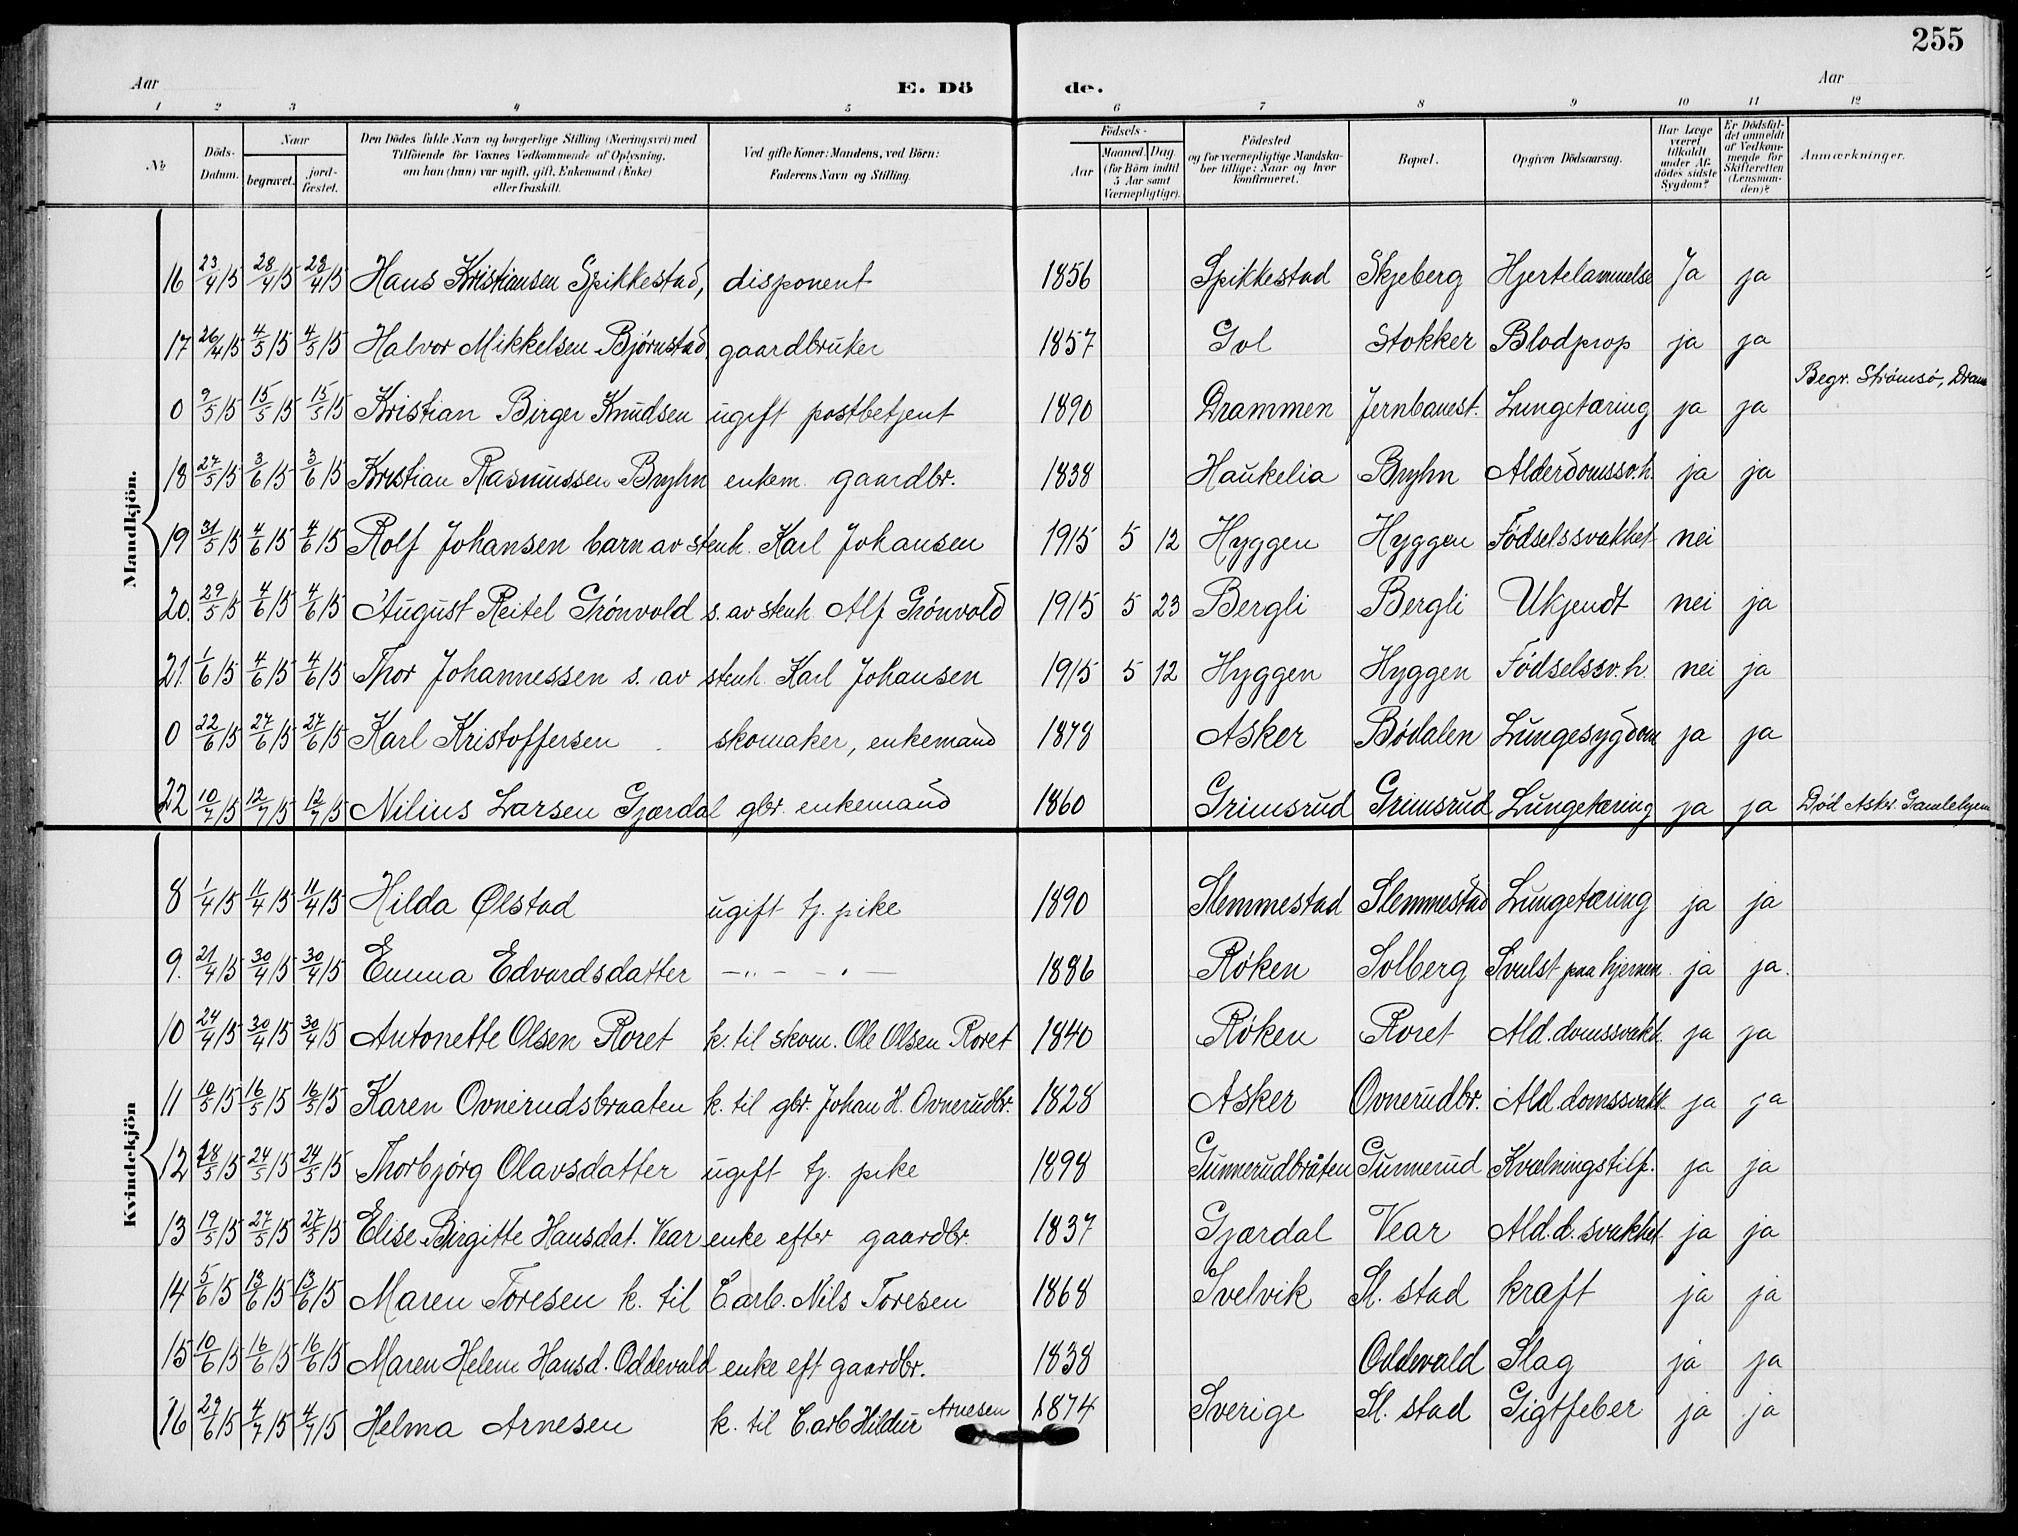 255
Aar E. Dö de. Aar
1 2 3 4 5 6 7 8 9 10 11 12
No
Döds-Datum.
Naar
begravet.
jord-fæstet.
Den Dödes fulde Navn og borgerlige Stilling (Næringsvei) med
Tilföiende for Voxnes Vedkommende af Oplysning,
om han (hun) var ugift, gift, Enkemand (Enke)
eller fraskilt.
Ved gifte Koner: Mandens, ved Börn:
Faderens Navn og Stilling.
Födsels-
Aar
Maaned. Dag
(for Börn indtil
5 Aar samt
Værnepligtige).
Födested
og for værnepligtige Mandska-
ber tillige: Naar og hvor
konfirmeret.
Bopæl.
Opgiven Dödsaarsag.
Har Læge
været
tilkaldt
under Af-
dödes sidste
Sygdom?
Er Dödsfal-
det anmeldt
af Vedkom-
mende for
Skifteretten
(Lensman-
den)?
Anmærkninger.
Mandkjön.
16 23/4 15 28/4 15 28/4 15 Hans Kristiansen Spikkestad, disponent 1856 Spikkestad Skjeberg Hjertelammelse Ja ja
17 26/4 15 4/5 15 4/5 15 Halvor Mikkelsen Bjørnstad gaardbruker 1857 Gol Stokker Blodprop ja ja
Begr. Strømsö, Dram
0 9/5 15 15/5 15 15/5 15 Kristian Birger Knudsen ugift postbetjent 1890 Drammen Jernbanest. Lungetæring ja ja
18 27/5 15 3/6 15 3/6 15 Kristian Rasmussen Bryhn enkem. gaardbr. 1838 Haukelia Bryhn Alderdomssv.h. ja ja
19 31/5 15 4/6 15 4/6 15 Rolf Johansen barn av stenh. Karl Johansen 1915 5 12 Hyggen Hyggen Födselssvakhet nei
20. 29/5 15 4/6 15 4/6 15 August Reitel Grönvold s. av stenh. Alf Grönvold 1915 5 23 Bergli Bergli Ukjendt nei ja
21 1/6 15 4/6 15 4/6 15 Thor Johannessen s. av stenh. Karl Johansen 1915 5 12 Hyggen Hyggen Födselssv.h. nei ja
0 22/6 15 27/6 15 27/6 15 Karl Kristoffersen skomaker, enkemand 1878 Asker Bödalen Lungesygdom ja ja
22 10/7 15 12/7 15 12/7 15 Nilius Larsen Gjærdal gbr. enkemand 1860 Grimsrud Grimsrud Lungetæring ja ja Död Asker Gamlehjem
Kvindekjön
8 1/4 15 11/4 15 11/4 15 Hilda Ølstad ugift tj. pike 1890 Slemmestad Slemmestad Lungetæring ja ja
9. 21/4 15 30/4 15 30/4 15 Emma Edvardsdatter —"— — " — 1886 Röken Solberg Svulst paa hjernen ja ja.
10 24/4 15 30/4 15 30/4 15 Antonette Olsen Roret k. til skom. Ole Olsen Roret 1840 Röken Roret Ald.domssvakh. ja ja
11 10/5 15 16/5 15 16/5 15 Karen Ovnerudsbraaten k. til gbr. Johan H. Ovnerudbr. 1828 Asker Ovnerudbr. Ald.domssvakh. ja ja
12 18/5 15 24/5 15 24/5 15 Thorbjörg Olavsdatter ugift tj. pike 1898 Gunnerudbråten Gunnerud Kvælningstilf. ja ja
13 19/5 15 27/5 15 27/5 15 Elise Birgitte Hansdat. Vear enke efter gaardbr. 1837 Gjærdal Vear Ald.d. svakhet ja ja
14 5/6 15 13/6 15 13/6 15 Maren Toresen k. til C.arb. Nils Toresen 1868 Svelvik Sl. stad kraft ja ja
15 10/6 15 16/6 15 16/6 15 Maren Helene Hansd. Oddevald enke eft gaardbr. 1838 Oddevald Slag ja ja
16 29/6 15 4/7 15 4/7 15 Helma Arnesen k. til C.arb Hildur Arnesen 1874 Sverige Sl. stad Gigtfeber ja ja